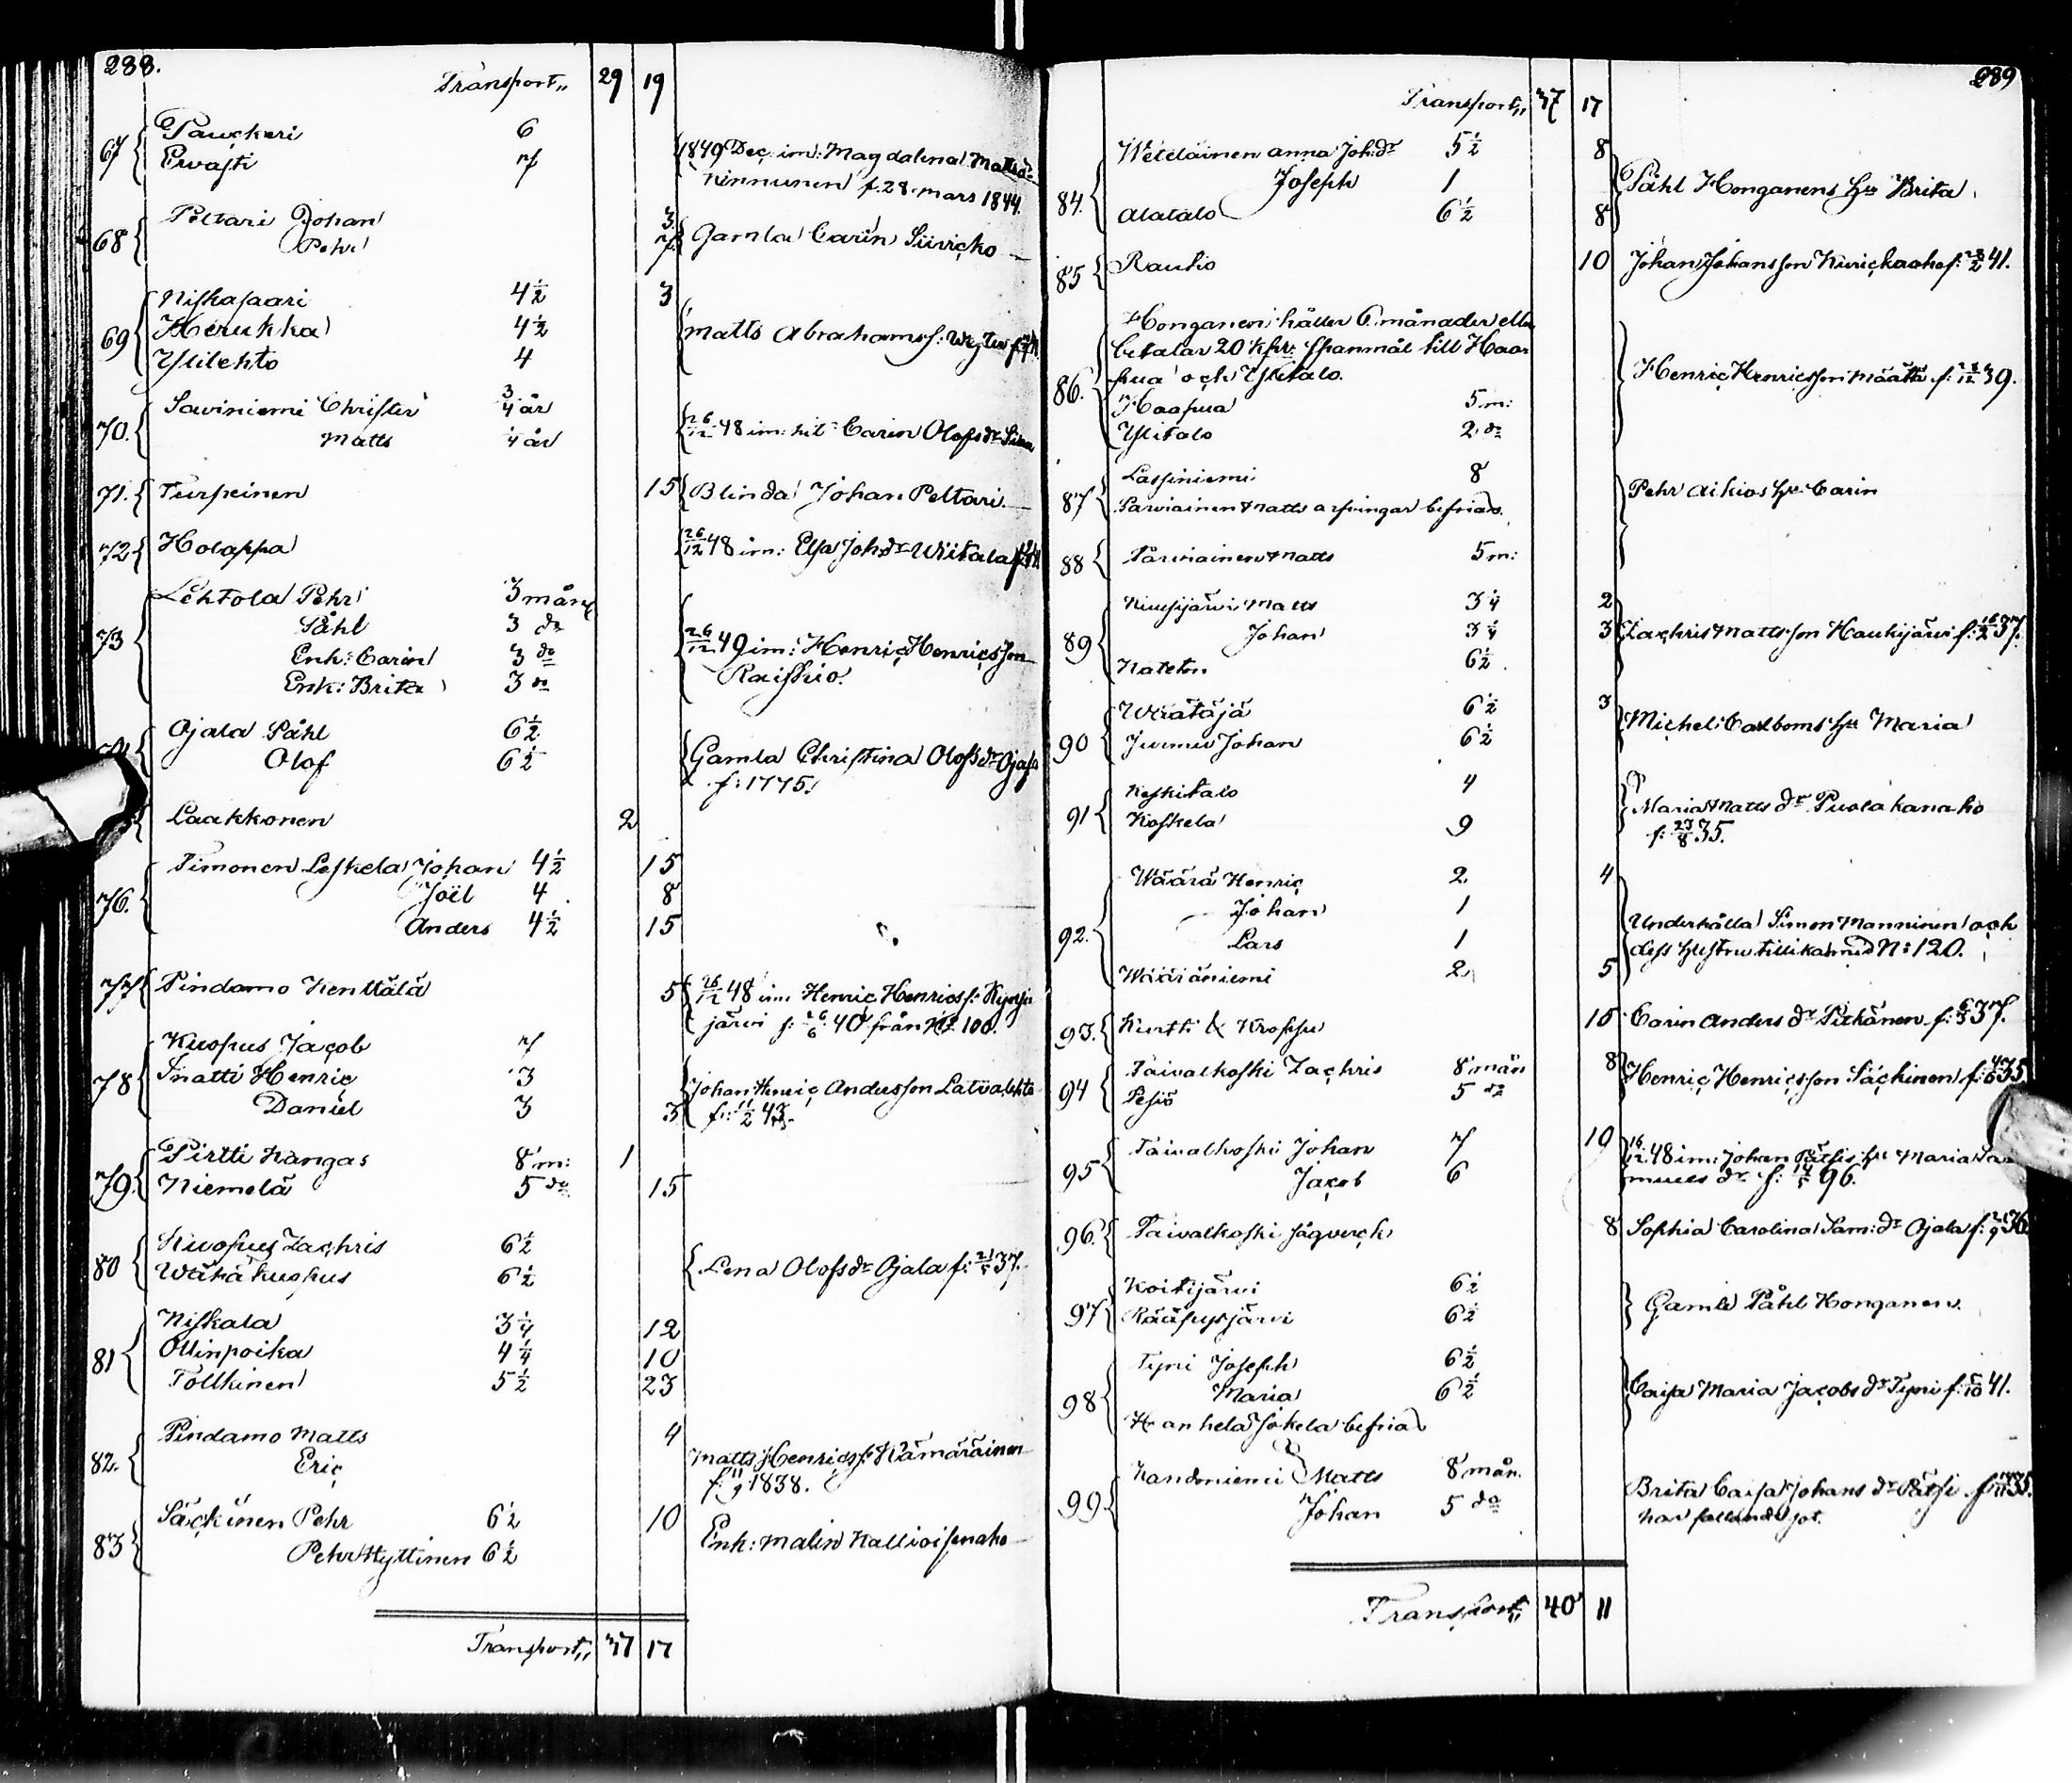 288.
Transport,, 29 19
67 Pauckeri 6
Ervasti 7
1849 Dec: im: Magdalena Mattsdr
Kinnunen f. 28. Mars 1844.
68 Peltari Johan 3
Pehr 7
Gamla Carin Siiricko
69 Niskasaari 4½ 3
Herukka 4½
Ylilehto 4
Matts Abrahamss:
70. Saviniemi Christer ¾ år
Matts ¼ år
26/12 48 im: hit Carin Olofsdr
71. Turpeinen 15
Blinda Johan Peltari.
72 Holappa
26/12 48 im: Elsa Johdr Wiitala
73 Lehtola Pehr 3 mån
Påhl 3 do
Enk: Carin 3 do
Enk: Brita 3 do
26/12 49 im: Henric Henricsson
Raiskio.
Ojala Påhl 6½
Olof 6½
Gamla Christina Olofsdr Ojala
f: 1775.
Laakkonen 2
76. Timonen Leskela Johan 4½ 15
Joël 4 8
Anders 4½ 15
77 Pindamo Kenttälä 5
26/12 48 im: Henric Henricss:
järvi f: 26/6 40 från No 100.
78 Kuopus Jacob 7
Inatti Henric 3
Daniel 3 3
Johan Henric Andersson Latvalehto
f: 11/2 43.
79. Pirtti Kangas 8 m: 1
Niemelä 5 do 15
80 Kuopus Zachris 6½
Wähäkuopus 6½
Lena Olofsdr Ojala f: 21/5 37.
81 Niskala 3¼ 12
Ollinpoika 4¼ 10
Tölkkinen 5½ 23
82. Pindamo Matts 4
Eric
Matts Henricss: Kämäräinen
f: 11/9 1838.
83 Säckinen Pehr 6½ 10
Pehr Hyttinen 6½
Enk: Malin Kallioisenaho
Transport,, 37 17
289
Transport,, 37 17
84. Weteläinen Anna Joh:dr 5½ 8
Joseph 1
Alatalo 6½ 8
Påhl Honganens hu Brita
85 Rautio 10
Johan Johansson Kurickaaho f: 41.
86. Honganen håller 6 månader eller
betalar 20 kpr: spanmål till Haa-
pua och Ylitalo.
Haapua 5 m:
Ylitalo 2 do
Henric Henricsson Määttä f: 39.
87 Lassiniemi 8
Parviainen Matts arfvingar befriad.
Pehr Aikios hu Carin
88 Parviainen Matts 5 m:
89 Kuusijärvi Matts 3¼ 2
Johan 3¼ 3
Kateton 6½
Zachris Mattsson Haukijärvi f: 16/2 37.
90 Wäätäjä 6½ 3
Jurmu Johan 6½
Michel Carlboms hu Maria
91 Keskitalo 4
Koskela 9
Maria Matts dr Puolakanaho
f: 23/8 35.
92. Wäärä Henric 2 4
Johan 1
Lars 1
Wääräniemi 2 5
Underhålla Simon Manninen och
dess hustru tillika med N: 120.
93. Kurtti & Kroppu 15
Carin Anders dr Pitkänen f: 37.
94 Taivalkoski Zachris 8 mån 8
Pesiö 5 do
Henric Henricsson Säckinen f: 35
95 Taivalkoski Johan 7 10
Jacob 6
16/12 48 im: Johan Pätsis hu Maria Sa-
muels dr f: 96.
96. Taivalkoski sågverck 8
Sophia Carolina Sam: dr Ojala f: 36
97 Koitijärvi 6½
Rääpysjärvi 6½
Gamle Påhl Honganen.
98 Tyni Joseph 6½
Maria 6½
H:an hela Jokela befriad
Caisa Maria Jacobs dr Tyni f: 41.
99 Kandoniemi Matts 8 mån.
Johan 5 do
Brita Caisa Johans dr Pätsi f: 35.
har fallande sot.
Transport,, 40 11